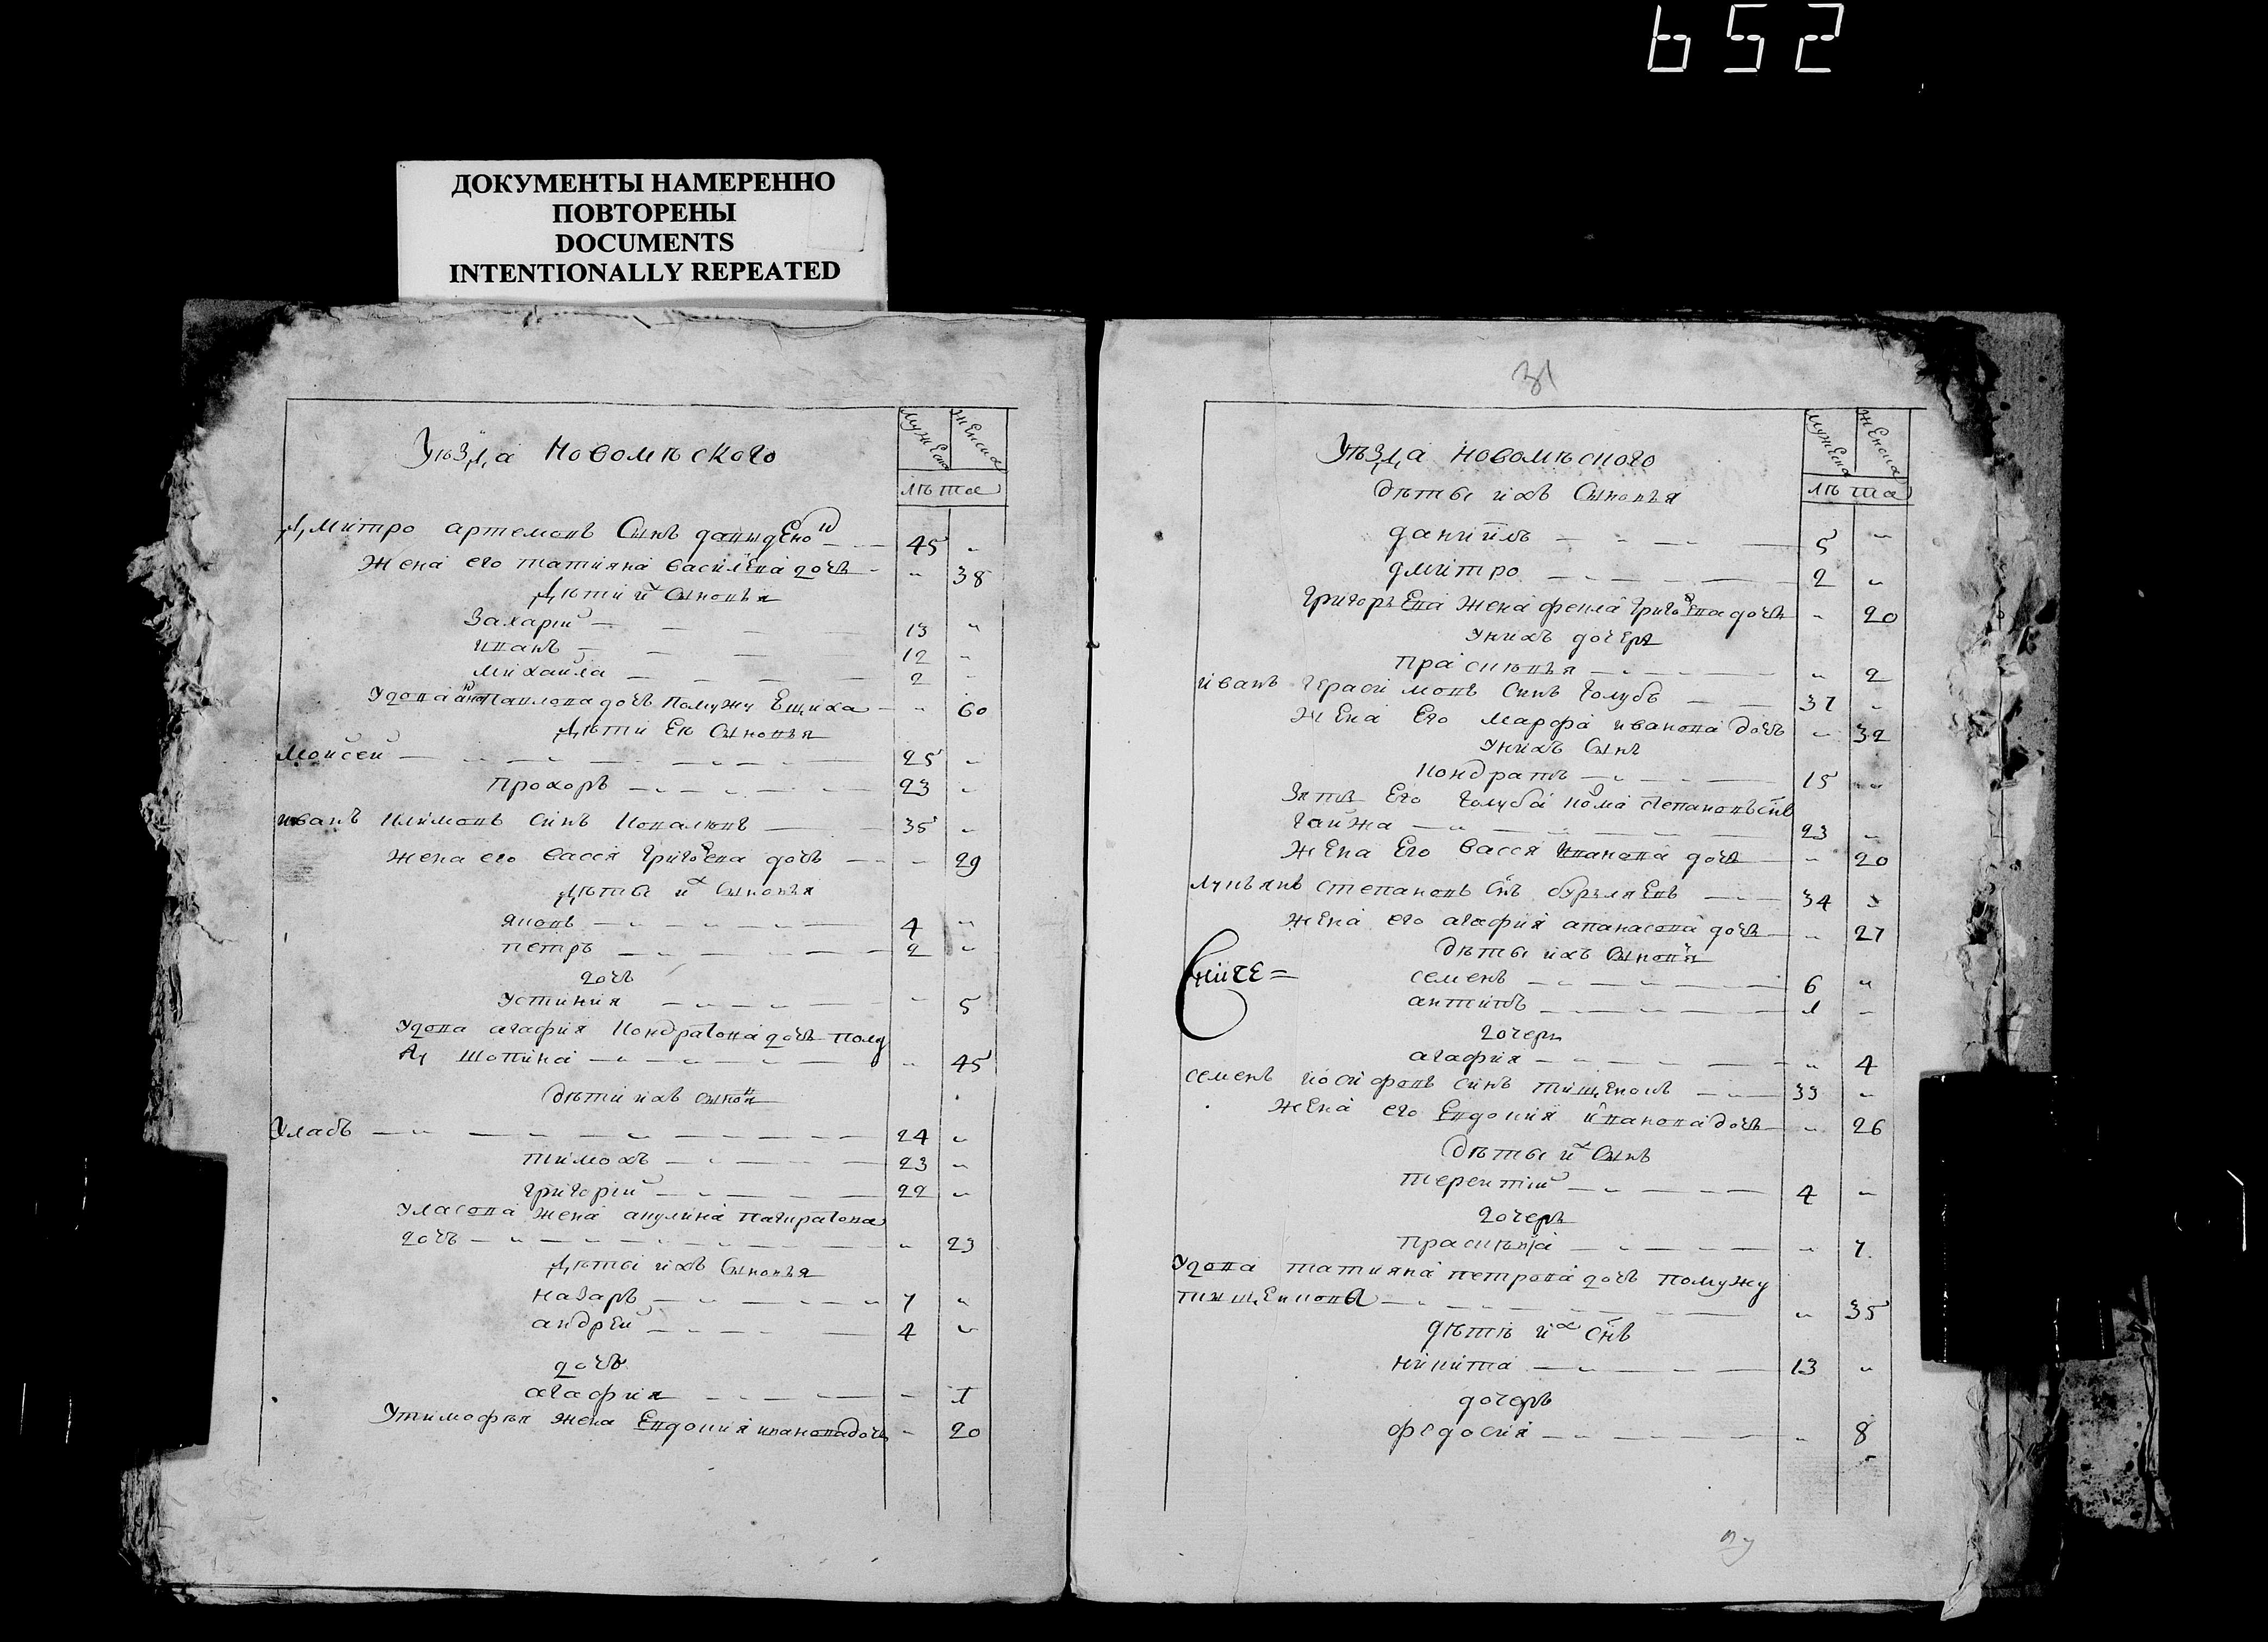 652
ДОКУМЕНТЫ НАМЕРЕННО
ПОВТОРЕНЫ
DOCUMENTS
INTENTIONALLY REPEATED
Уѣзда Новомѣского
мужеска женска
лѣта
Дмитро артемовъ Синъ 45 „
Жена его татияна василева дочъ „ 38
Дѣти их Синовья
Захарий 13 „
иванъ 12 „
михайла 2 „
Удова анна павлова дочъ помужу Ещиха „ 60
Дѣти Еѣ Синовья
Моисей 25 „
прохоръ 23 „
иванъ климовъ синъ ковалювъ 35 „
жена его васся григорева дочъ „ 29
Дѣты их Синовья
яковъ 4 „
петръ 2 „
дочъ
устиния „ 5
Удова агафия кондратова дочъ пому
жу шопина „ 45
Дѣти ихъ синовя
Уласъ 24 „
тимохъ 23 „
григорий 22 „
Уласова жена акулина
дочъ „ 23
Дѣты ихъ Синовья
назаръ 7 „
андрей 4 „
дочъ
агафия „ 1
Утимофѣя жена Евдокия иванова дочъ „ 20
31
Уѣзда новомѣского
мужеска женска
лѣта
Дѣты ихъ Синовья
данийлъ 5 „
дмитро 2 „
Григорьева жена фекла григорева дочъ „ 20
Унихъ дочеря
прасковья „ 2
иванъ герасимовъ синъ голубъ 37 „
Жена Его марфа иванова дочъ „ 32
Унихъ синъ
кондратъ 15 „
Зять Его голуба кома степановъ снъ
гайжа 23 „
Жена Его васся иванова дочъ „ 20
лукьянъ степановъ снъ 34 „
жена его агафия апанасова дочъ „ 27
дѣты ихъ Синовя
семенъ 6 „
антипъ 1 „
дочеръ
агафия „ 4
семенъ иосифовъ синъ тищенокъ 33 „
жена его Евдокия иванова дочъ „ 26
Дѣты их Синъ
терентий 4 „
дочеръ
прасковья „ 7
Удова татияна петрова дочъ помужу
тищенкова „ 35
дѣтѣ их снъ
никита 13 „
дочеръ
федосия „ 8